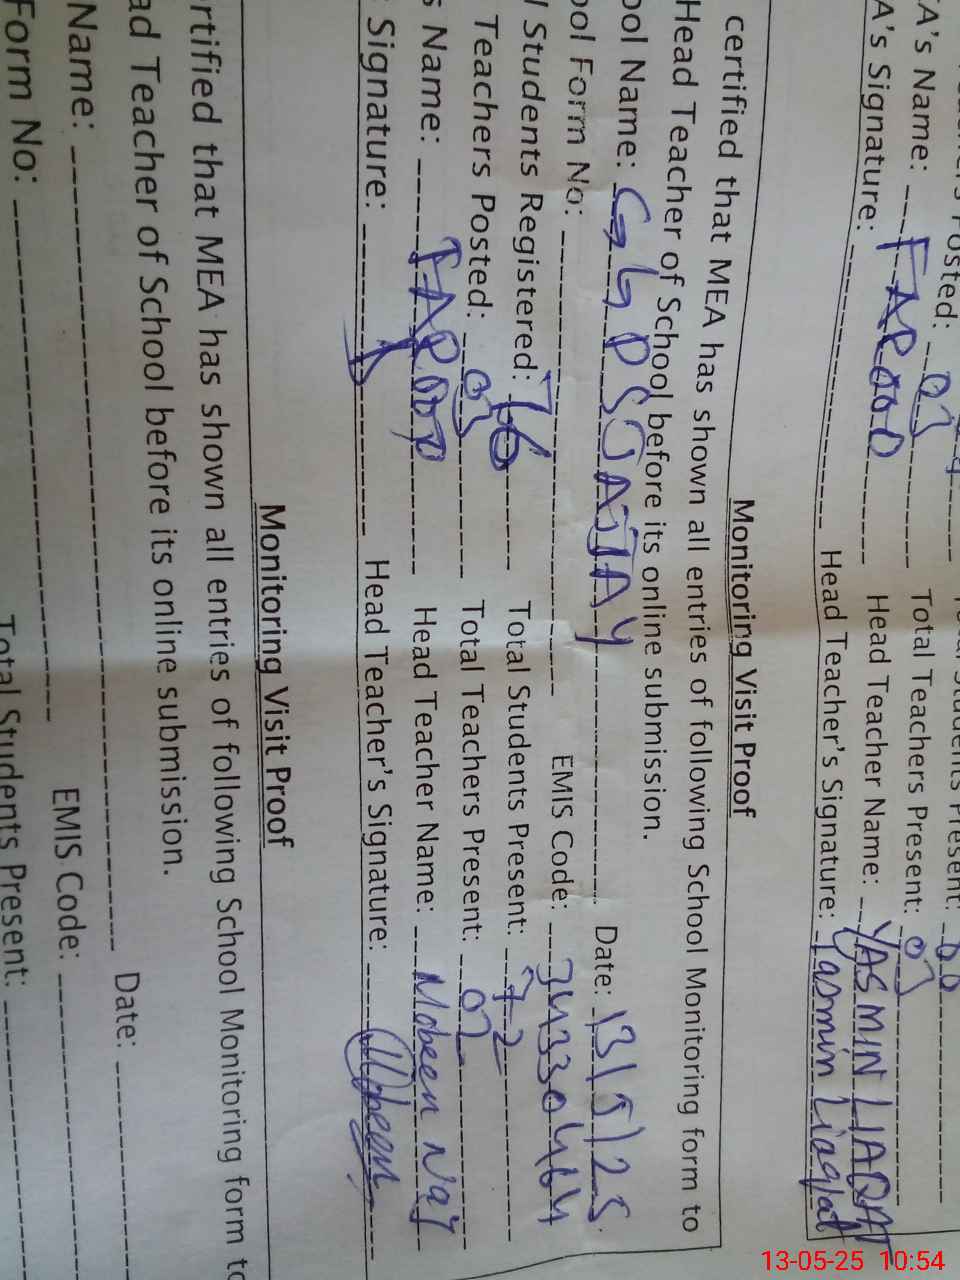 Posted: 03 Total Students Present:
A's Name: FAROOQ Total Teachers Present: 03
A's Signature: Head Teacher Name: YASMIN LIAQAT
Head Teacher's Signature: Yasmin Liaqat
Monitoring Visit Proof
certified that MEA has shown all entries of following School Monitoring form to
Head Teacher of School before its online submission.
ool Name: GGPS JAJJAY Date: 13/5/25
ool Form No: EMIS Code: 34330464
l Students Registered: 76 Total Students Present: 72
Teachers Posted: 03 Total Teachers Present: 02
s Name: FAROOQ Head Teacher Name: Mobeen
Signature: Head Teacher's Signature: Mobeen
Monitoring Visit Proof
rtified that MEA has shown all entries of following School Monitoring form to
ad Teacher of School before its online submission.
Name: Date:
Form No: EMIS Code:
Total Students Present:
13-05-25 10:54